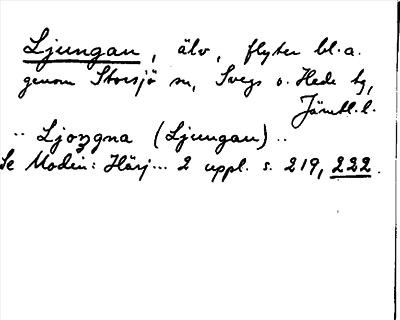 Ljungan, älv, flyter bl.a.
genom Storsjö sn, Svegs o. Hede tg,
Jämtl.l.
.. Ljozgna (Ljungan) ..
Se Modin: Härj... 2 uppl. s. 219, 222.